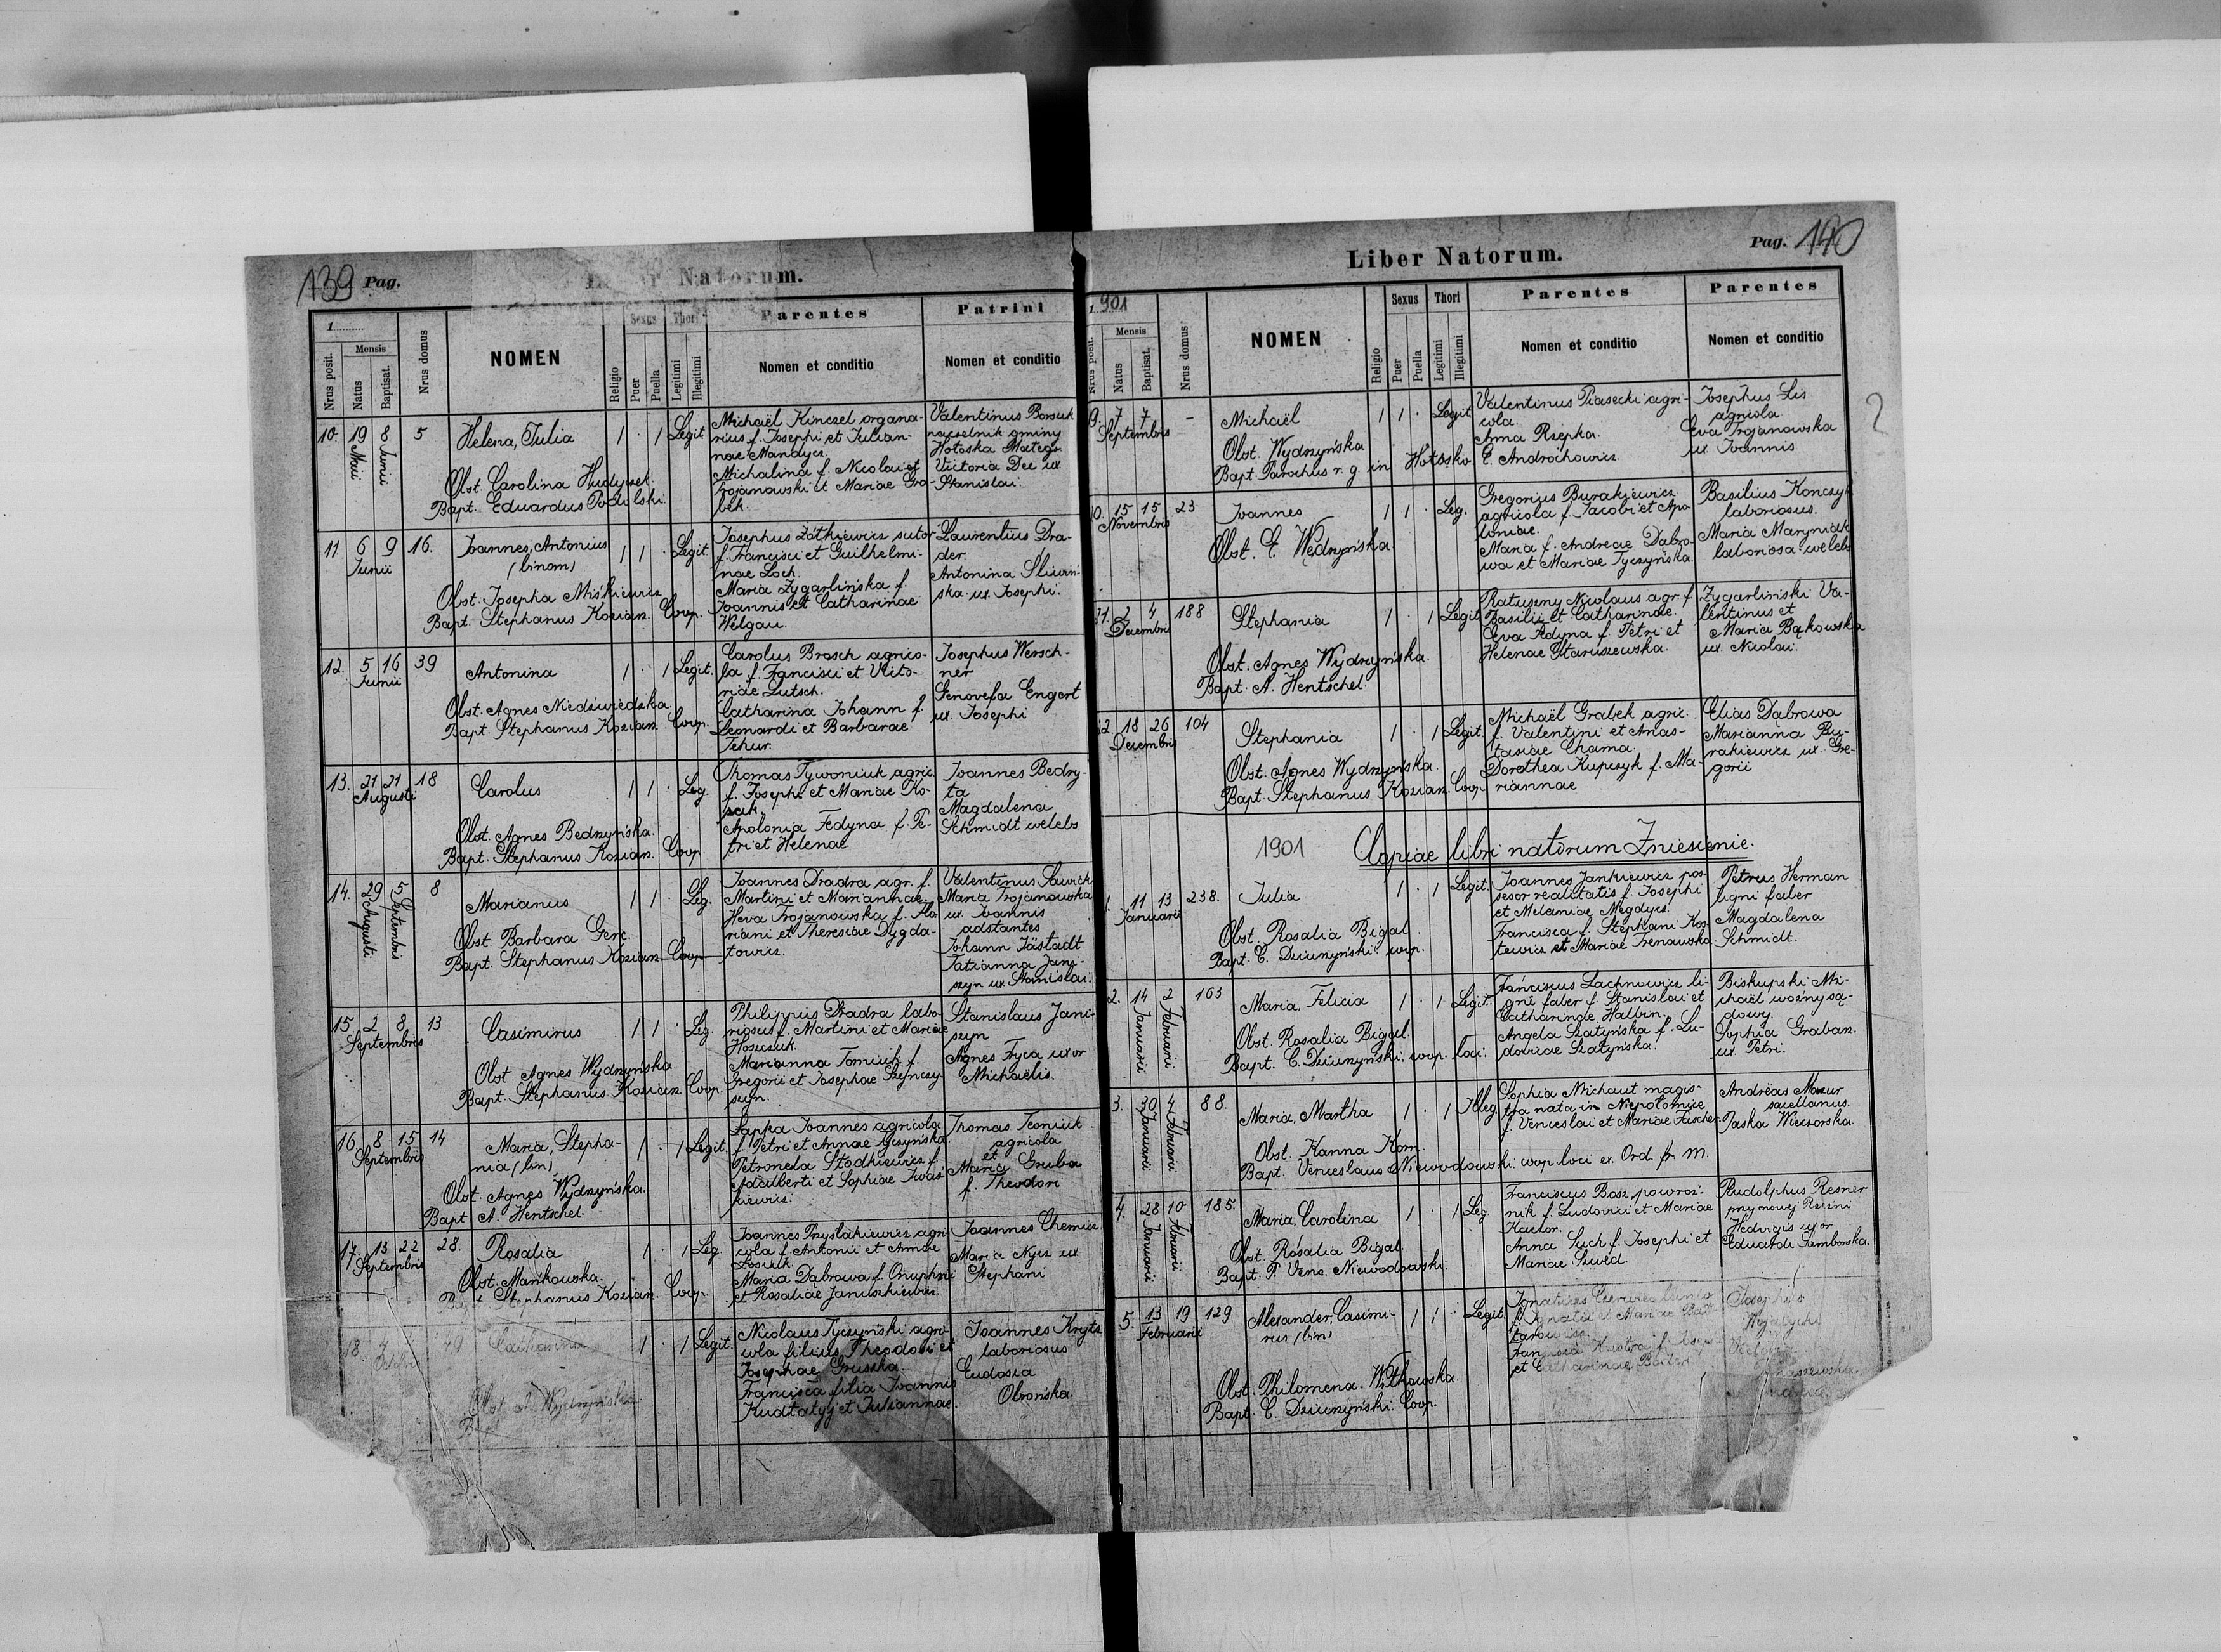 139 Pag.
Natorum.
1
Nrus posit.
Mensis
Natus
Baptisat.
Nrus domus
NOMEN
Religio
Sexus
Puer
Puella
Thori
Legitimi
Illegitimi
Parentes
Nomen et conditio
Patrini
Nomen et conditio
10. 19 Maii 8 Junii 5
Helena, Julia
1 . 1 Legit
Obst. Carolina Hudyzet.
Bapt. Eduardus Podulski.
Michaël Kinczel organa-
rius f. Josephi et Julian-
nae Mandycz.
Michalina f. Nicolai et
Trojanowski et Mariae Gra-
bek.
Valentinus Borsuk
naczelnik gminy
Hołoska Małego
Victoria Dec ux
Stanislai.
11. 6 9 Junii 16.
Joannes, Antonius
(binom)
1 1 . Legit
Obst. Josepha Miśkiewicz
Bapt. Stephanus Kozian. Coop.
Josephus Żółkiewicz sutor
f. Francisci et Guilhelmi-
nae Loch.
Maria Zygarlińska f.
Joannis et Catharinae
Welgau.
Laurentius Dra-
der
Antonina Śliwiń-
ska ux. Josephi.
12. 5 16 Junii 39
Antonina
1 . 1 Legit.
Obst. Agnes Niedźwiedzka
Bapt. Stephanus Kozian. Coop.
Carolus Brosch agrico-
la f. Francisci et Victo-
riae Lutsch.
Catharina Johann f.
Leonardi et Barbarae
Tehur.
Josephus Wersch-
ner
Genovefa Engert
ux. Josephi
13. 21 21 Augusti 18
Carolus
1 1 . Leg.
Obst. Agnes Bedrzyńska.
Bapt. Stephanus Kozian. Coop
Thomas Tywoniuk agric.
f. Josephi et Mariae Ko-
zak.
Apolonia Fedyna f. Pe-
tri et Helenae.
Joannes Bedry-
ta
Magdalena
Schmidt welebs
14. 29 Augusti 5 Septembris 8
Marianus
1 1 . Leg.
Obst. Barbara Gerc.
Bapt. Stephanus Kozian Coop
Joannes Dradra agr. f.
Martini et Mariannae
Heva Trojanowska f. Flo-
riani et Theresiae Dygda-
towicz.
Valentinus Sawicki
Maria Trojanowska
ux. Joannis
adstantes
Johann Jästadt
Tatianna Jani-
szyn ux. Stanislai.
15. 2 8 Septembris 13
Casimirus
1 1 . Leg.
Obst Agnes Wydrzyńska
Bapt. Stephanus Kozian Coop.
Philippus Dradra labo-
riosus f. Martini et Mariae
Hoszczuk.
Marianna Tomiuk f.
Gregorii et Josephae Szynczy-
szyn.
Stanislaus Jani-
szyn
Agnes Fryca uxor
Michaëlis.
16 8 15 Septembris 14
Maria, Stepha-
nia (bin)
1 . 1 Legit.
Obst. Agnes Wydrzyńska.
Bapt A. Hentschel.
Pappa Joannes agricola
f. Petri et Annae Tyczyńska.
Petronela Słodkiewicz f.
Adalberti et Sophiae Iwaś-
kiewicz.
Thomas Tomiuk
agricola
et
Maria Gruba
f. Theodori
17. 13 22 Septembris 28.
Rosalia
1 . 1 Leg
Obst. Mańkowska.
Bapt Stephanus Kozian. Coop.
Joannes Przyslakiewicz agri-
cola f. Antonii et Annae
Łosiuk.
Maria Dąbrowa f. Onuphrii
et Rosaliae Januszkiewicz.
Joannes Chemicz
Maria Nycz ux
Stephani
18. 49
Catharina
1 . 1 Legit.
Obst. A. Wydrzyńska
Bapt
Nicolaus Tyczyński agri-
cola filius Theodori et
Josephae Gruszka.
Francisca filia Joannis
Kudłatyj et Juliannae.
Joannes Kryta
laboriosus
Eudosia
Obrońska.
Liber Natorum.
Pag. 140
1901
Nrus posit.
Mensis
Natus
Baptisat.
Nrus domus
NOMEN
Religio
Sexus
Puer
Puella
Thori
Legitimi
Illegitimi
Parentes
Nomen et conditio
Parentes
Nomen et conditio
9. 7 7 Septembris -
Michaël
1 1 . Legit
Obst. Wydrzyńska
Bapt. Parochus r. g. in Hołosko
Valentinus Piasecki agri-
cola.
Anna Rzepka.
E. Androchowicz.
Josephus Lis
agricola
Eva Trojanowska
ux Joannis
2
0. 15 15 Novembris 23
Joannes
1 1 . Leg.
Obst. Wędrzyńska
Gregorius Burakiewicz
agricola f. Jacobi et Apo-
loniae.
Maria f. Andreae Dąbro-
wa et Mariae Tyczyńska.
Basilius Konczyk
laboriosus.
Maria Maryniak
laboriosa welebs
21. 2 4 Decembris 188
Stephania
1 . 1 Legit
Obst. Agnes Wydrzyńska.
Bapt. A. Hentschel.
Ratuszny Nicolaus agr. f.
Basilii et Catharinae.
Eva Fedyna f. Petri et
Helenae Staruszewska.
Zygarliński Va-
lentinus et
Maria Bąkowska
ux. Nicolai.
22. 18 26 Decembris 104
Stephania
1 . 1 Legit
Obst. Agnes Wydrzyńska.
Bapt. Stephanus Kozian. Coop
Michaël Grabek agric.
f. Valentini et Anas-
tasiae Chama.
Dorothea Kupczyk f. Ma-
riannae
Elias Dąbrowa
Marianna Bu-
rakiewicz ux. Gre-
gorii
1901 Copiae libri natorum Zniesienie.
1. 11 13 Januarii 238.
Julia
1 . 1 Legit.
Obst. Rosalia Bigal.
Bapt. C. Dziurzyński. coop.
Joannes Jankiewicz pos-
sesor realitatis f. Josephi
et Melaniae Megdycz.
Francisca f. Stephani Kos-
tewicz et Mariae Trenawska.
Petrus Herman
ligni faber
Magdalena
Schmidt.
2. 14 Januarii 2 Februarii 163
Maria, Felicia
1 . 1 Legit.
Obst. Rosalia Bigal.
Bapt. C. Dziurzyński. coop. loci.
Franciscus Lachnowicz li-
gni faber f. Stanislai et
Catharinae Halbin.
Angela Szatyńska f. Lu-
dovicae Szatyńska.
Biskupski Mi-
chaël woźny są-
dowy.
Sophia Graban.
ux. Petri.
3. 30 Januarii 4 Februarii 88.
Maria, Martha
1 . 1 Illeg
Obst. Hanna Korn.
Bapt. Venceslaus Niewodowski coop. loci ex. Ord. fr. m.
Sophia Michaut magis-
tra nata in Niepołomice
f. Venceslai et Mariae Fischer.
Andreas Mazur
sacellanus.
Paska Wieczorska.
4. 28 Januarii 10 Februarii 185.
Maria, Carolina
1 . 1 Leg
Obst. Rosalia Bigal.
Bapt. P. Vens. Niewodowski.
Franciscus Bosz powroź-
nik f. Ludovici et Mariae
Kactor.
Anna Such f. Josephi et
Mariae Szwed
Rudolphus Resner
przy nowej Rzeźni
Hedvigis uxor
Eduardi Samborska.
5. 13 19 Februarii 129
Alexander, Casimi-
rus (bin)
1 1 . Legit.
Obst. Philomena Witkowska.
Bapt. C. Dziurzyński. Coop.
Ignatius
f. Ignatii et Mariae
Francisca Kustra f. Josep
et Catharinae
Josephus
Victoria